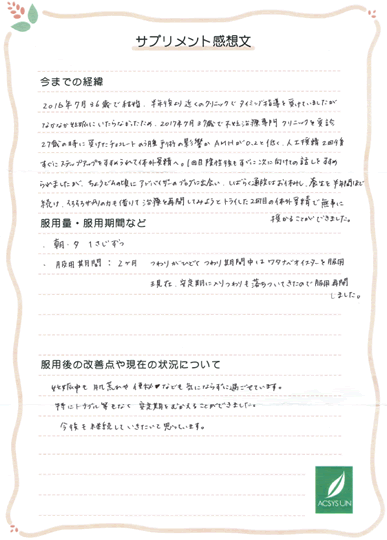 サプリメント感想文
今までの経緯
2016年7月36歳で結婚。半年後より近くのクリニックでタイミング指導を受けていましたが
なかなか妊娠にいたらなかったため、2017年7月37歳で不妊治療専門クリニックを受診
27歳の時に受けたチョコレートのう腫手術の影響かAMHが0.2と低く、人工授精2回後
すぐにステップアップをすすめられて体外受精へ。1回目陰性後もすぐに次に向けての話しをすすめ
られましたが、ちょうどその頃にアドバイザーのブログに出会い、しばらく通院はお休みし、養生を半年間ほど
続け、うちうちサプリの力も借りて治療を再開してみようとトライした2回目の体外受精で無事に
授かることができました。
服用量・服用期間など
・朝・夕 1さじずつ
・服用期間：2ヶ月 つわりがひどくつわり期間中はワタナベオイスターを服用
現在、安定期に入りつわりも落ちついてきたので服用再開
しました。
服用後の改善点や現在の状況について
妊娠中も肌荒れや便秘♥なども気にならずに過ごせています。
特にトラブル等もなく安定期をむかえることができました。
今後も継続していきたいと思っています。
ACSYSUN